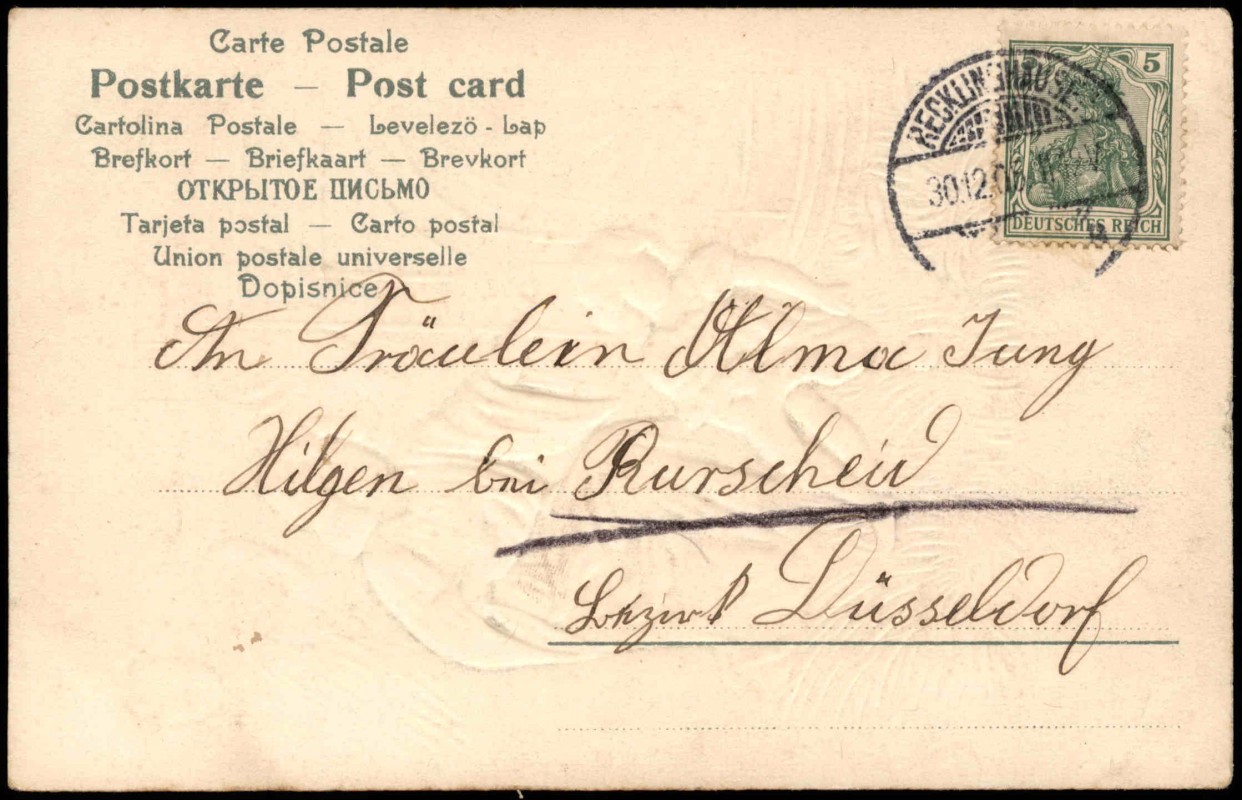 Carte Postale
Postkarte — Post card
Cartolina Postale — Levelezö - Lap
Brefkort — Briefkaart — Brevkort
ОТКРЫТОЕ ПИСЬМО
Tarjeta postal — Carto postal
Union postale universelle
Dopisnice
5
DEUTSCHES REICH
RECKLINGHAUSEN
30.12.05
An Fräulein Alma Jung
Hilgen bei Burscheid
Bezirk Düsseldorf